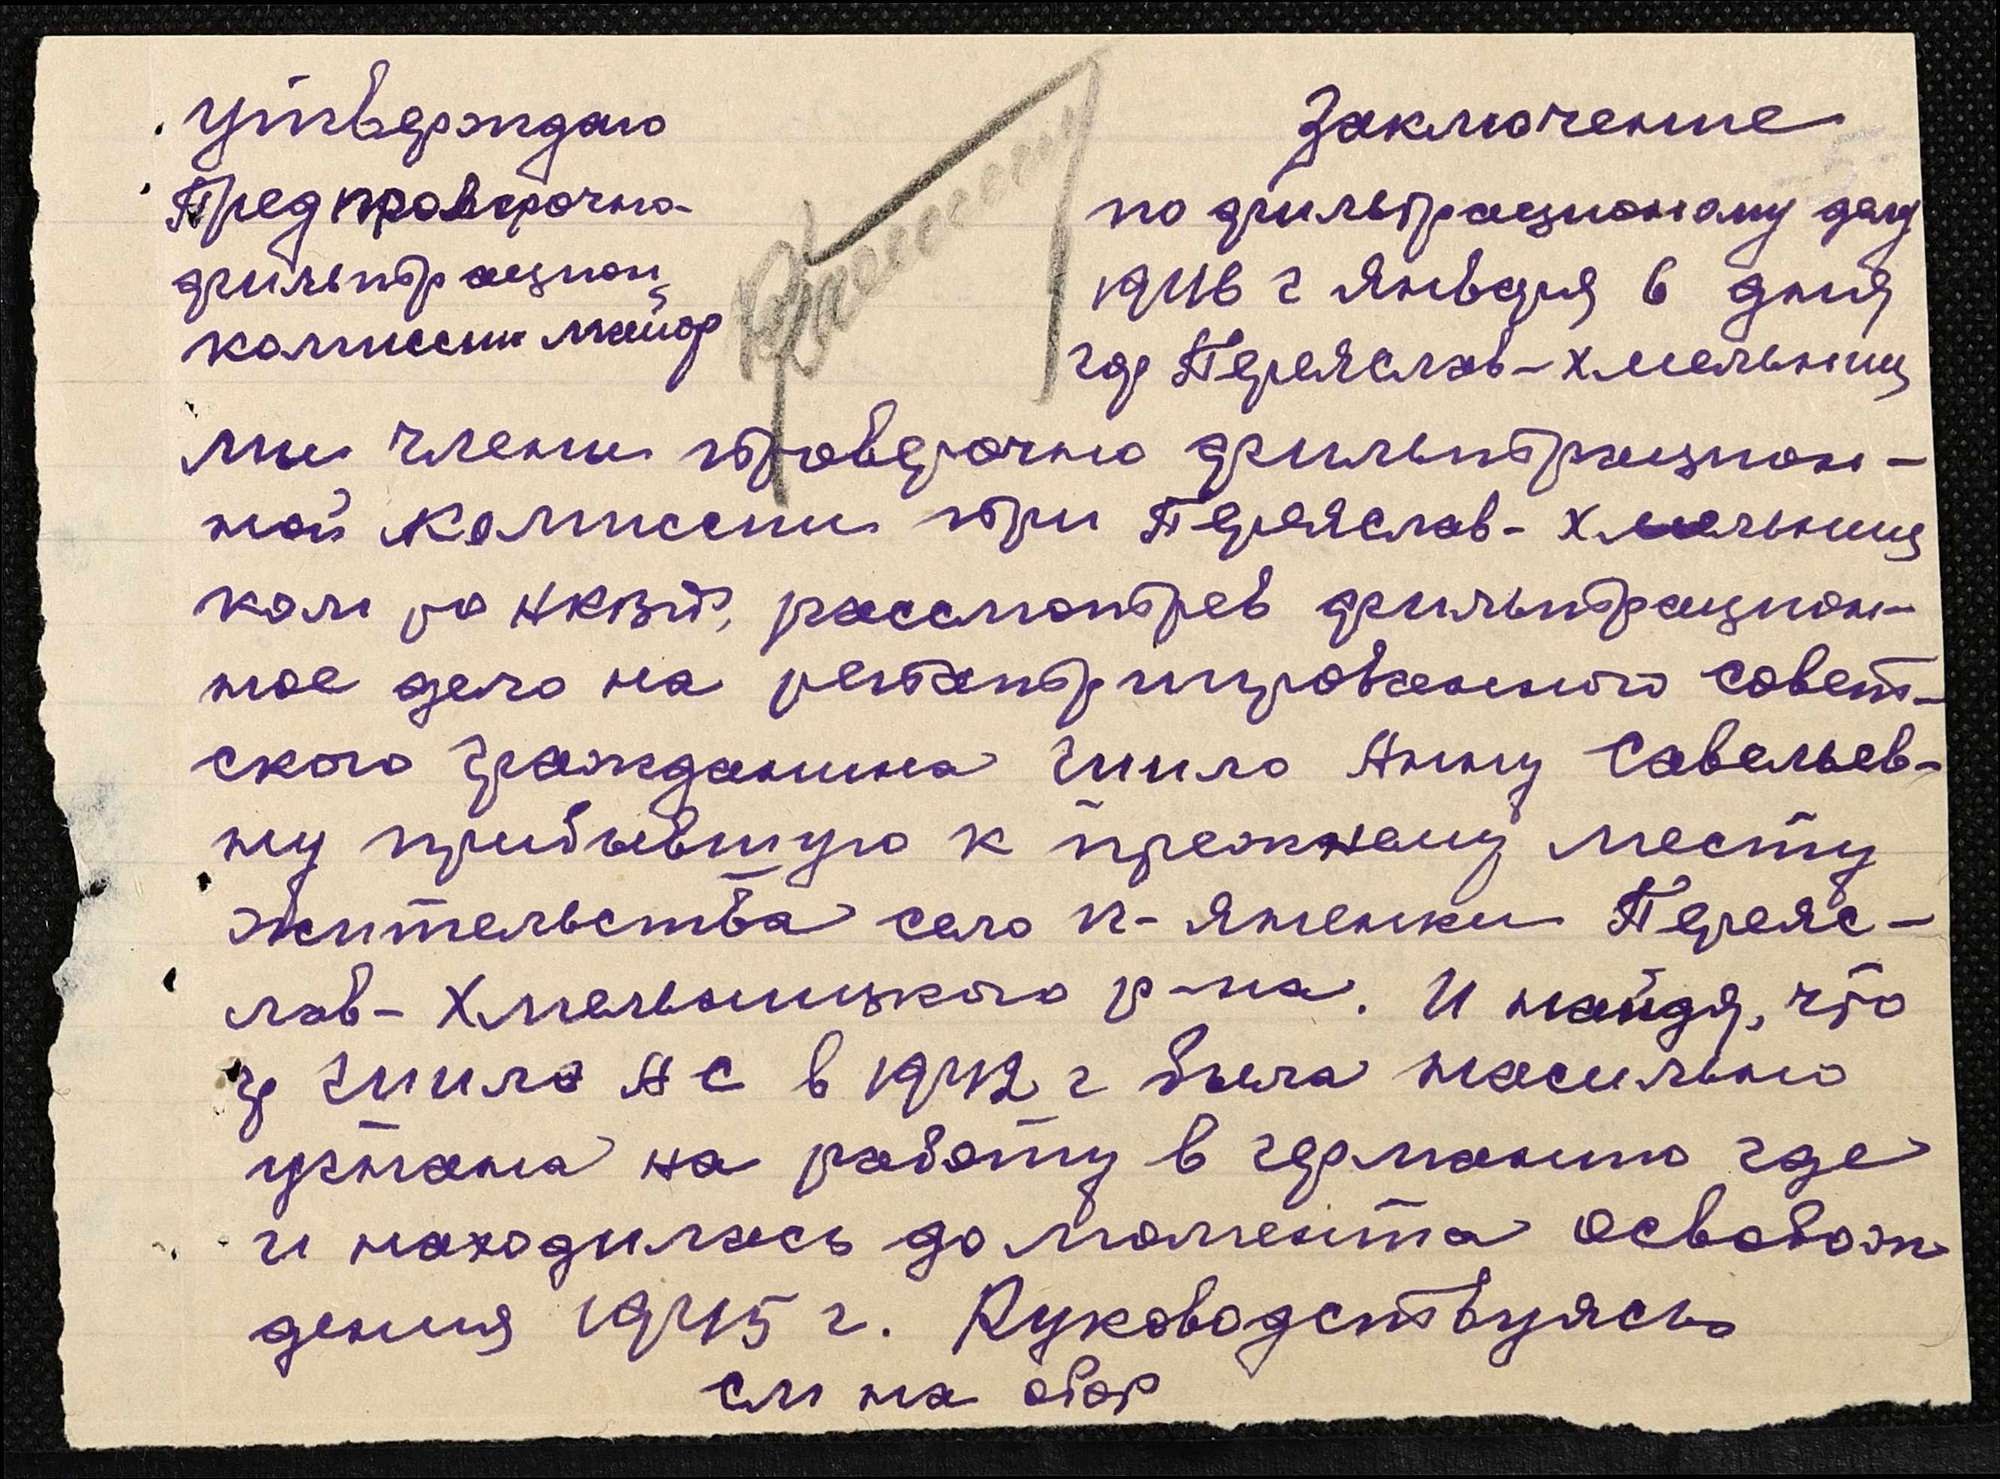 Утверждаю
Пред проверочно-
фильтрацион
комиссии майор
Заключение
по фильтрационому делу
1946 г Января 6 дня
гор Переяслав-Хмельниц
мы члены проверочно фильтрацион-
ной комиссии при Переяслав-Хмельниц
ком ро НКВД, рассмотрев фильтрацион-
ное дело на репатриированного совет-
ского гражданина Анну Савельев-
ну прибывшую к прежнему месту
жительства село Яненки Переяс-
лав-Хмельницкого р-на. И найдя, что
А С в 1942 г была насильно
угнана на работу в германию где
и находилась до момента освобож
дения 1945 г. Руководствуясь
см на обор